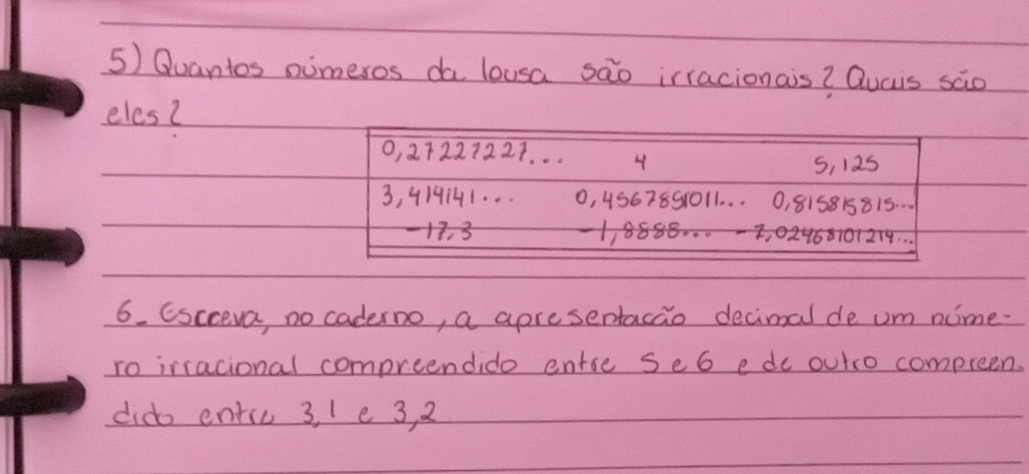 5) Quantos números da lousa são irracionais? Quais são
eles?
0,27227227... 4 5,125
3,414141... 0,4567891011... 0,815815815...
-17,3 -1,8888... -7,02468101214...
6- Escreva, no caderno, a apresentacão decimal de um núme-
ro irracional compreendido entre 5 e 6 e de outro compreen-
dido entre 3,1 e 3,2